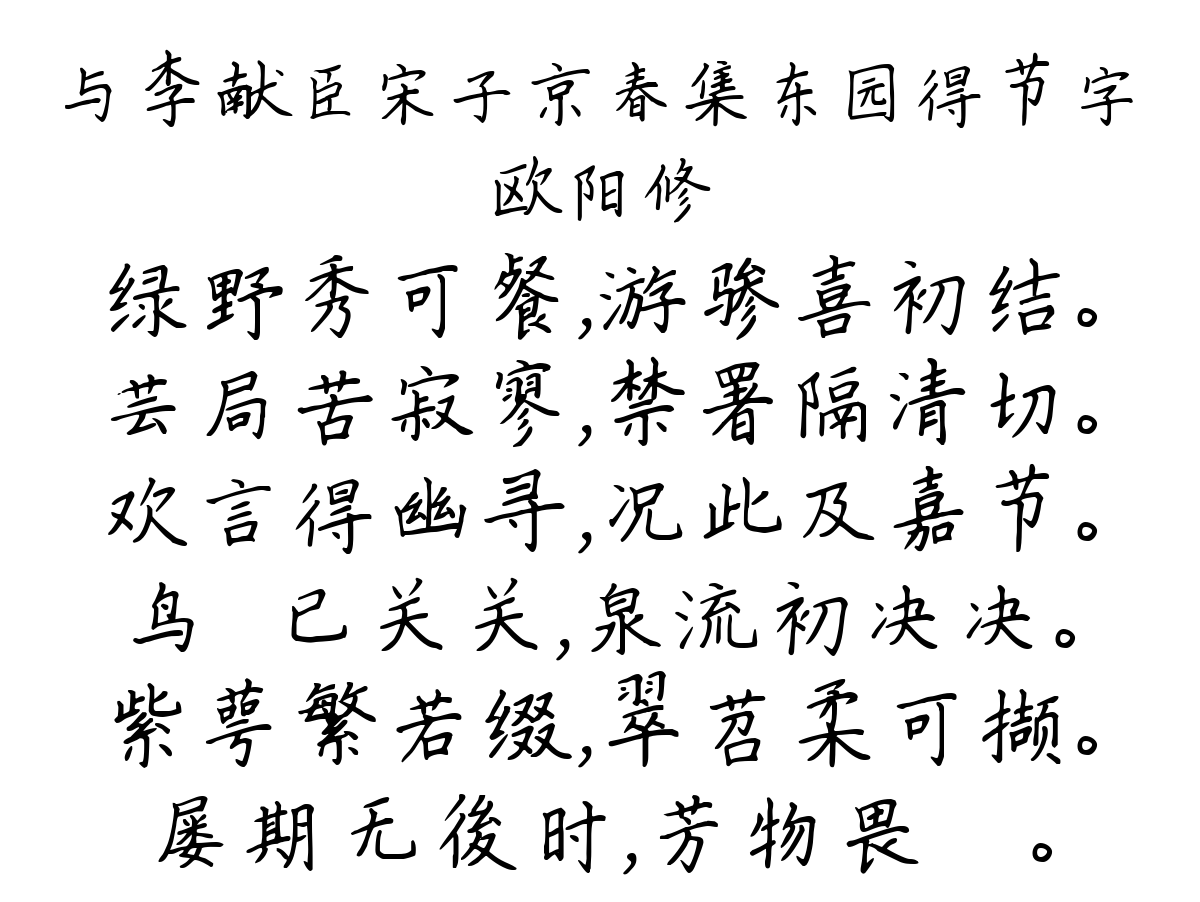 与李献臣宋子京春集东园得节字
欧阳修
绿野秀可餐,游骖喜初结。
芸局苦寂寥,禁署隔清切。
欢言得幽寻,况此及嘉节。
鸟 已关关,泉流初决决。
紫萼繁若缀,翠苕柔可撷。
屡期无後时,芳物畏 。